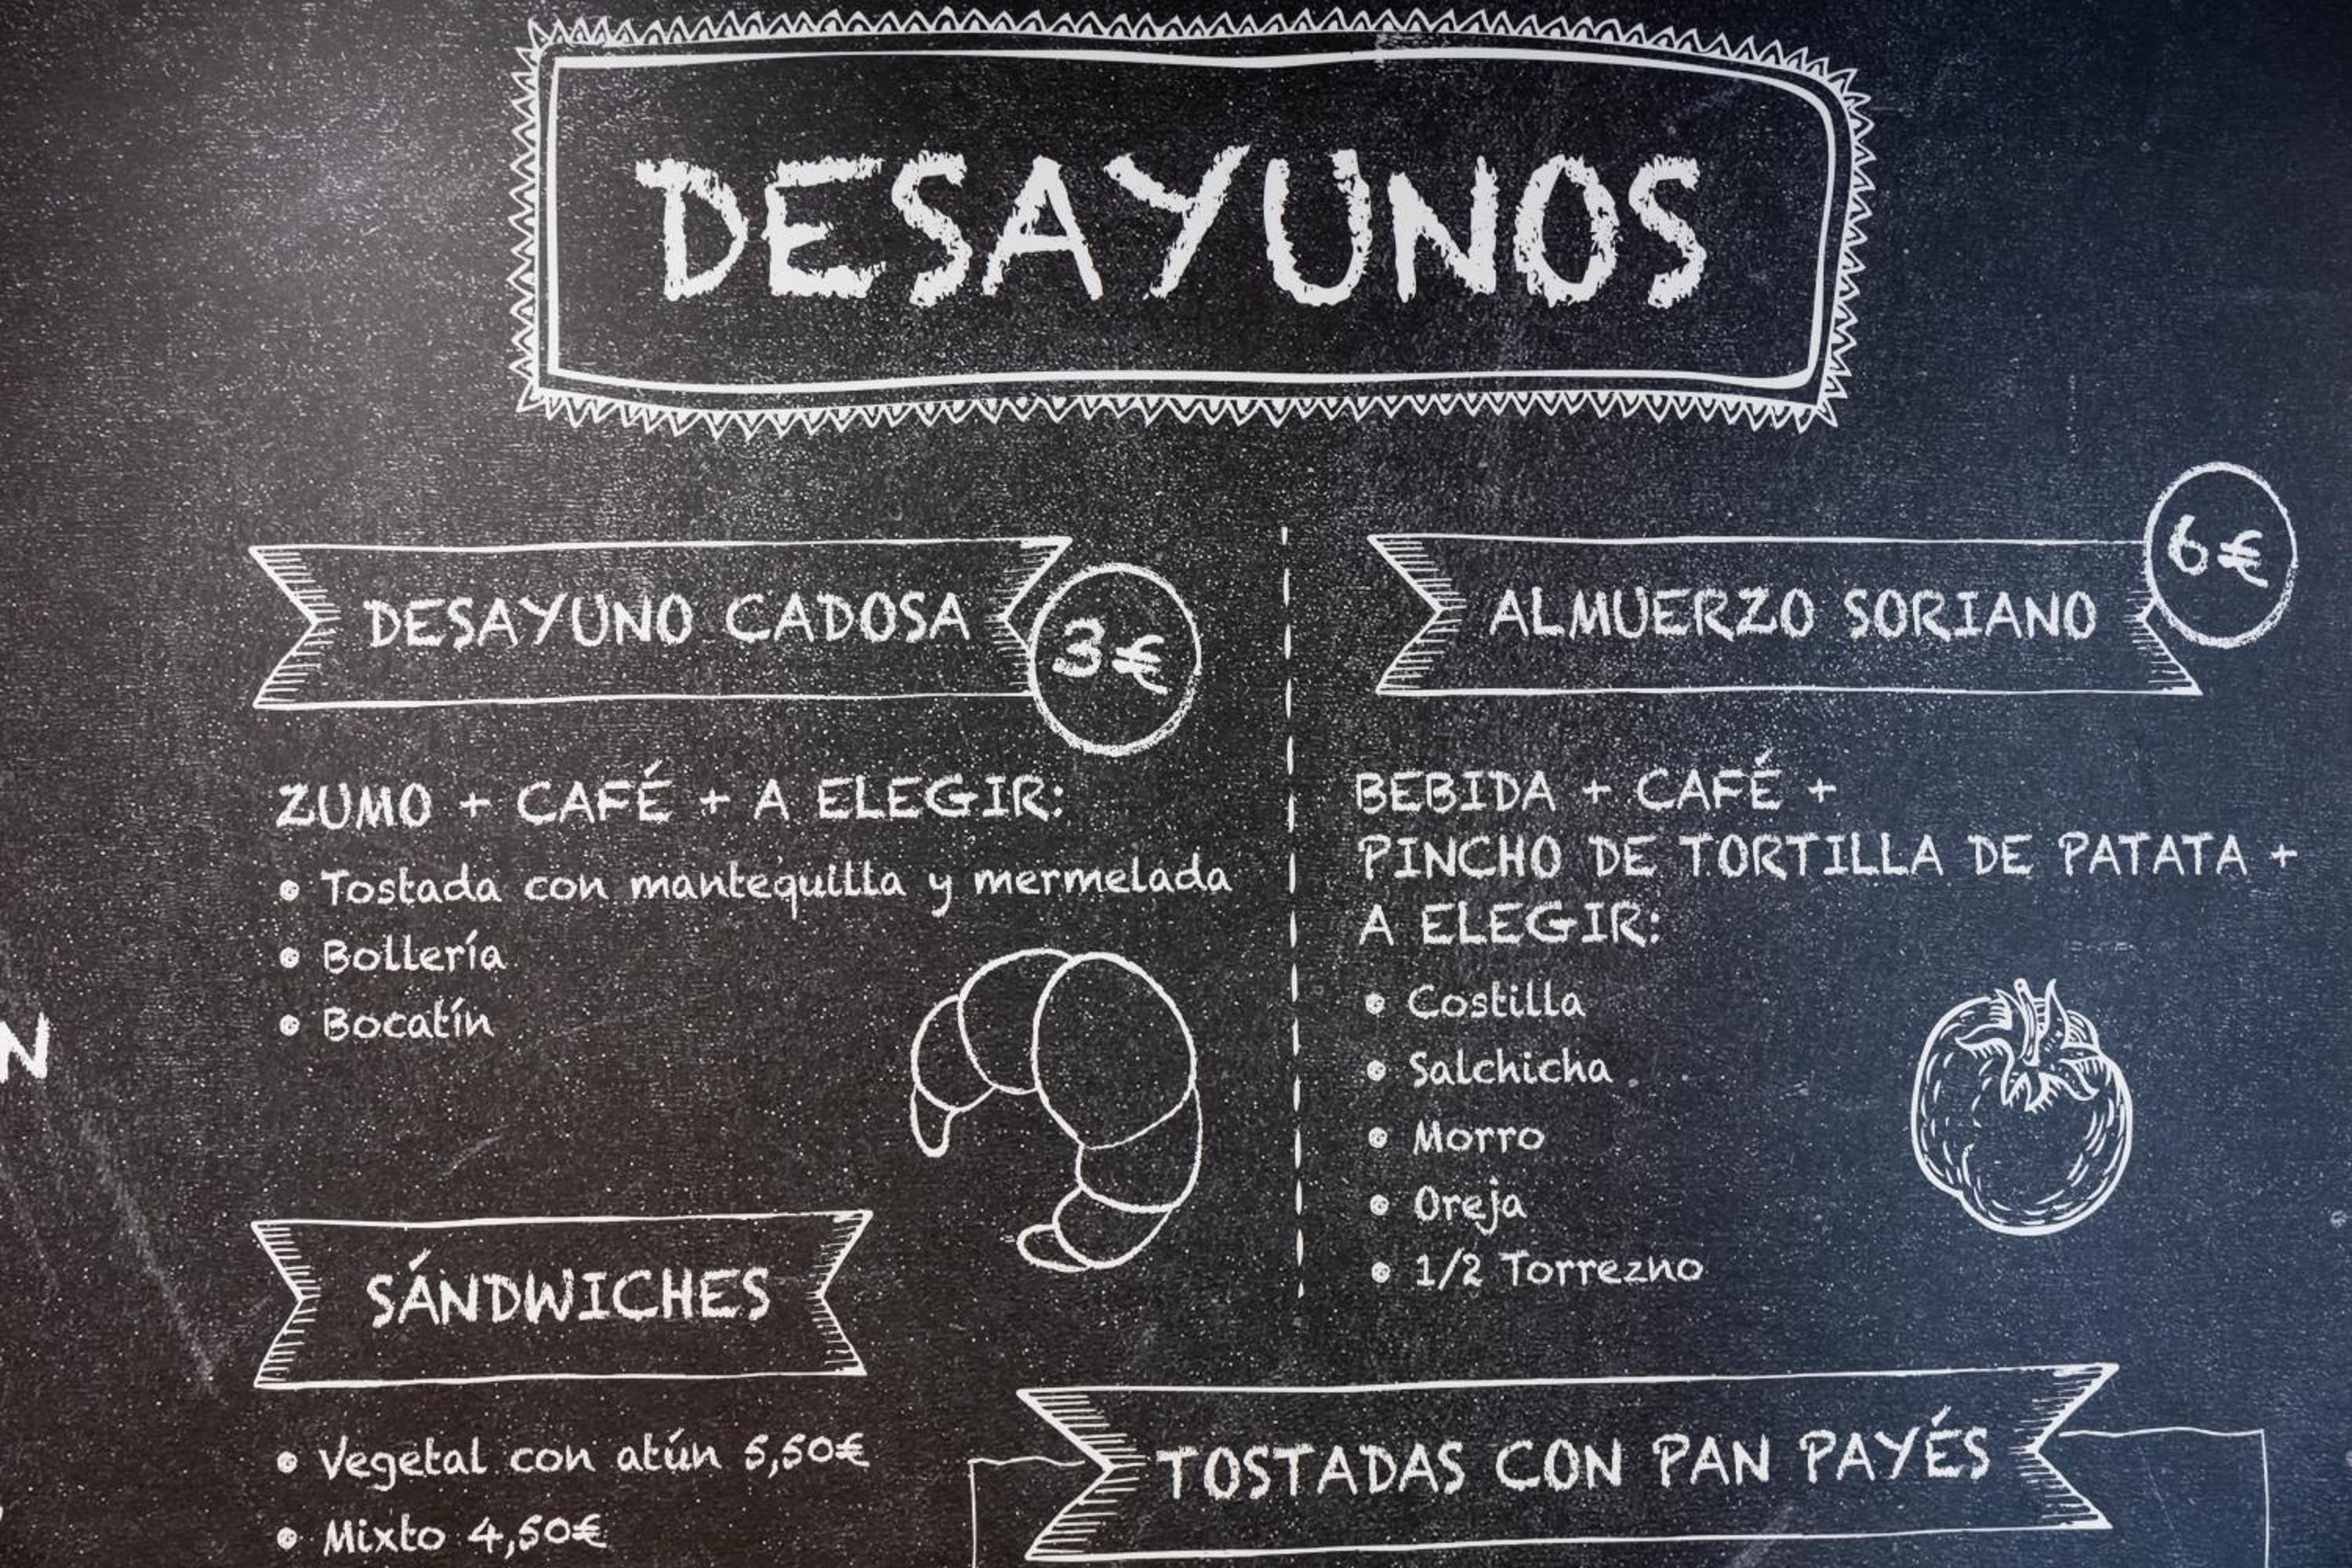 DESAYUNOS
DESAYUNO CADOSA
3€
ZUMO + CAFÉ + A ELEGIR:
• Tostada con mantequilla y mermelada
• Bollería
• Bocatín
ALMUERZO SORIANO
6€
BEBIDA + CAFÉ +
PINCHO DE TORTILLA DE PATATA +
A ELEGIR:
• Costilla
• Salchicha
• Morro
• Oreja
• 1/2 Torrezno
N
SÁNDWICHES
• Vegetal con atún 5,50€
• Mixto 4,50€
TOSTADAS CON PAN PAYÉS